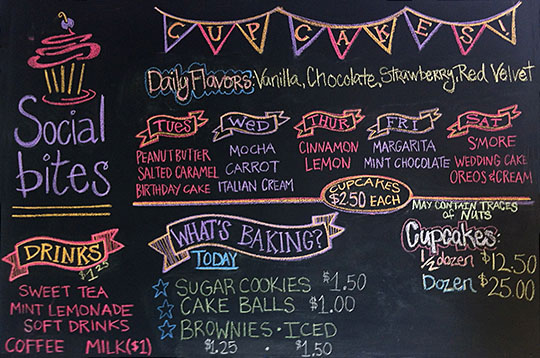 CUPCAKES!
Social
bites
Daily Flavors: Vanilla, Chocolate, Strawberry, Red Velvet
TUES
PEANUT BUTTER
SALTED CARAMEL
BIRTHDAY CAKE
WED
MOCHA
CARROT
ITALIAN CREAM
THUR
CINNAMON
LEMON
FRI
MARGARITA
MINT CHOCOLATE
SAT
S'MORE
WEDDING CAKE
OREOS & CREAM
CUPCAKES
$2.50 EACH
MAY CONTAIN TRACES
OF NUTS
DRINKS
$1.25
SWEET TEA
MINT LEMONADE
SOFT DRINKS
COFFEE MILK ($1)
WHAT'S BAKING?
TODAY
SUGAR COOKIES $1.50
CAKE BALLS $1.00
BROWNIES · ICED
$1.25 · $1.50
Cupcakes:
1/2 dozen $12.50
Dozen $25.00